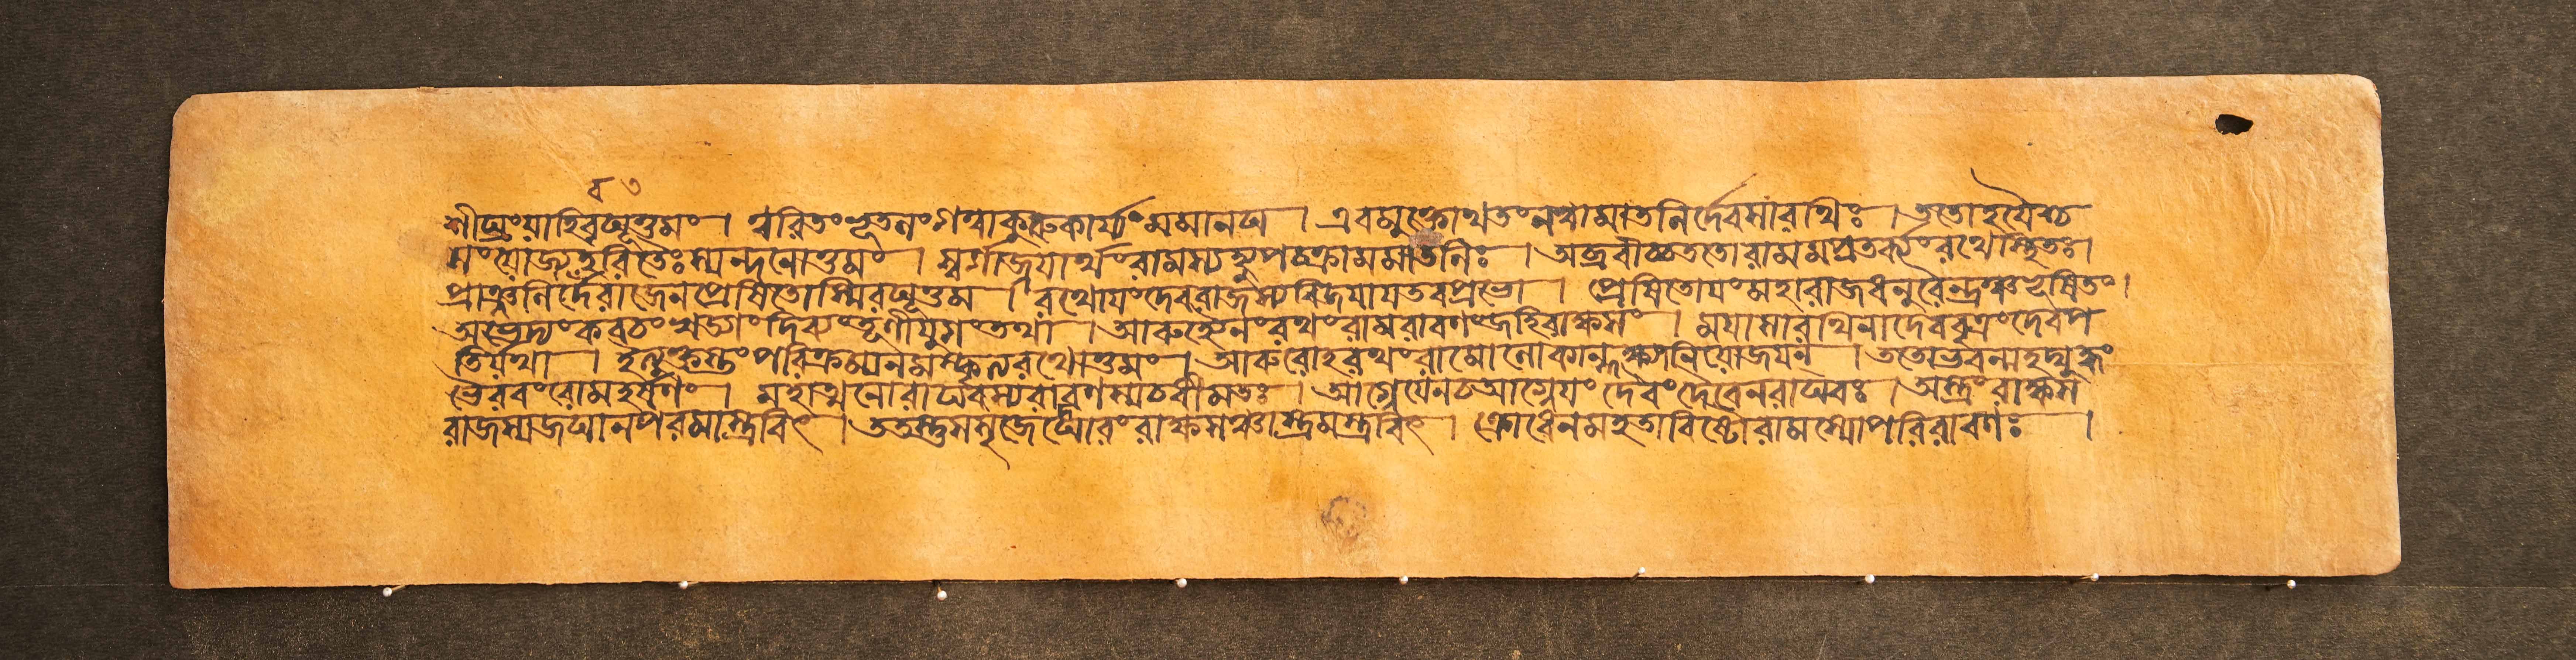 ব ৩
শীঘ্রং যাহি রঘূত্তমং । ত্বরিতং ভূতলং গত্বা কুরু কার্য্যং মমানঘ । এবমুক্তোথ তং নত্বা মাতলির্দেবসারথিঃ । ততো হযৈশ্চ
সংযোজ্য হরিতৈঃ স্যন্দনোত্তমং । স্বর্গাজ্জযার্থং রামস্য হ্যুপচক্রাম মাতলিঃ । অব্রবীচ্চ ততো রামমপ্রতর্ক্যং রথে স্থিতঃ ।
প্রাঞ্জলির্দেবরাজেন প্রেষিতোস্মি রঘূত্তম । রথোযং দেবরাজস্য বিজযায তব প্রভো । প্রেষিতোযং মহারাজ ধনুরৈন্দ্রঞ্চ ভূষিতং ।
অভেদ্যং কবচং খড়্গং দিব্যং তূণীযুগং তথা । আরুহ্যেনং রথং রাম রাবণং জহি রাক্ষসং । মযা সারথিনা দেব বৃত্রং দেবপ
তির্যথা । ইত্যুক্তস্তং পরিক্রম্য নমস্কৃত্য রথোত্তমং । আরুরোহ রথং রামো লোকান্ লক্ষ্ম্যা নিযোজযন্ । ততোভবন্মহদ্যুদ্ধং
ভৈরবং রোমহর্ষণং । মহাত্মনো রাঘবস্য রাবণস্য চ ধীমতঃ । আগ্নেযেন চ আগ্নেযং দৈবং দৈবেন রাঘবঃ । অস্ত্রং রাক্ষস
রাজস্য জঘান পরমাস্ত্রবিৎ । ততস্তু সসৃজে ঘোরং রাক্ষসঞ্চাস্ত্রমস্ত্রবিৎ । ক্রোধেন মহতাবিষ্টো রামস্যোপরি রাবণঃ ।